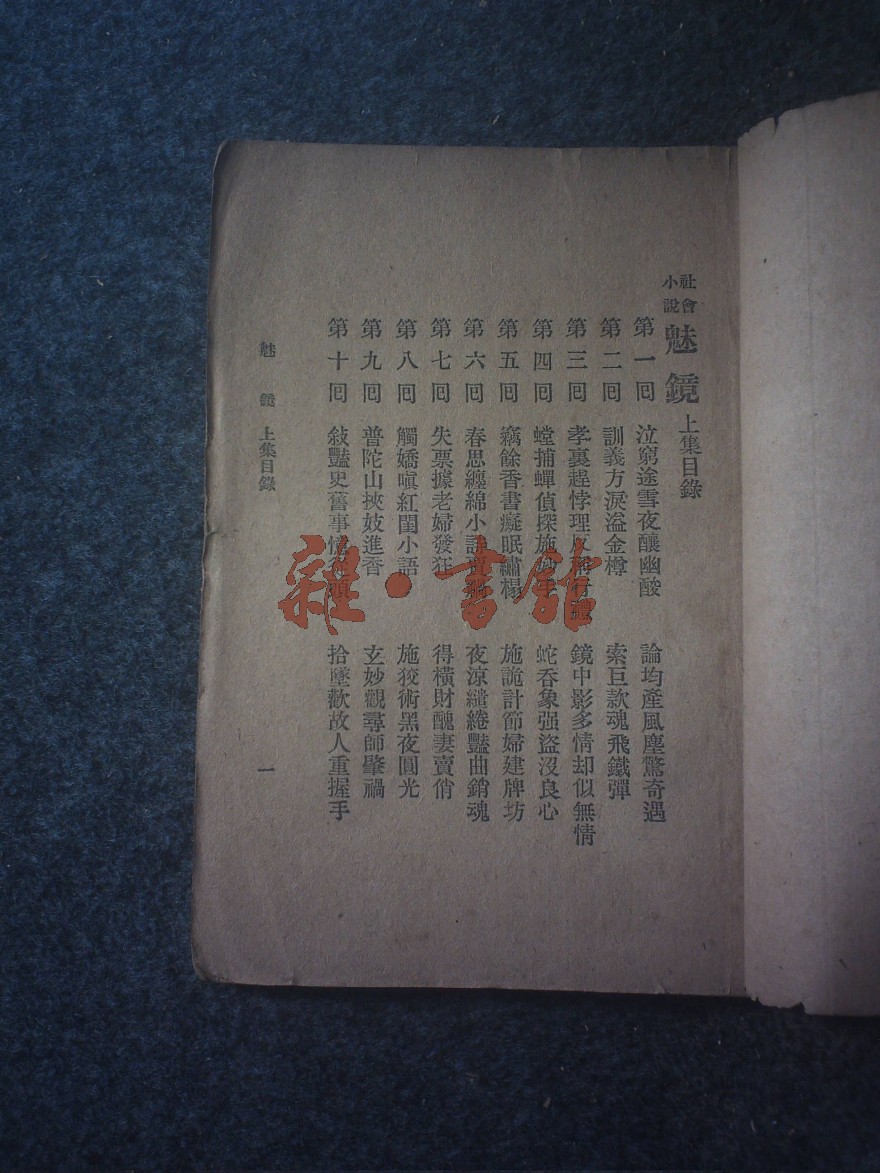 社會小說 魅鏡 上集目錄
第一回 泣窮途雪夜釀幽酸 論均產風塵驚奇遇
第二回 訓義方淚溢金樽 索巨款魂飛鐵彈
第三回 孝裏趕悖理 鏡中影多情却似無情
第四回 螳捕蟬偵探施妙手 蛇吞象强盜沒良心
第五回 竊餘香書癡眠繡榻 施詭計節婦建牌坊
第六回 春思纏綿小 夜涼繾綣豔曲銷魂
第七回 失票據老婦發狂 得橫財醜妻賣俏
第八回 觸嬌嗔紅閨小語 施狡術黑夜圓光
第九回 普陀山挾妓進香 玄妙觀尋師肇禍
第十回 敍豔史舊事憶 拾墜歡故人重握手
魅鏡 上集目錄
一
雜·書館